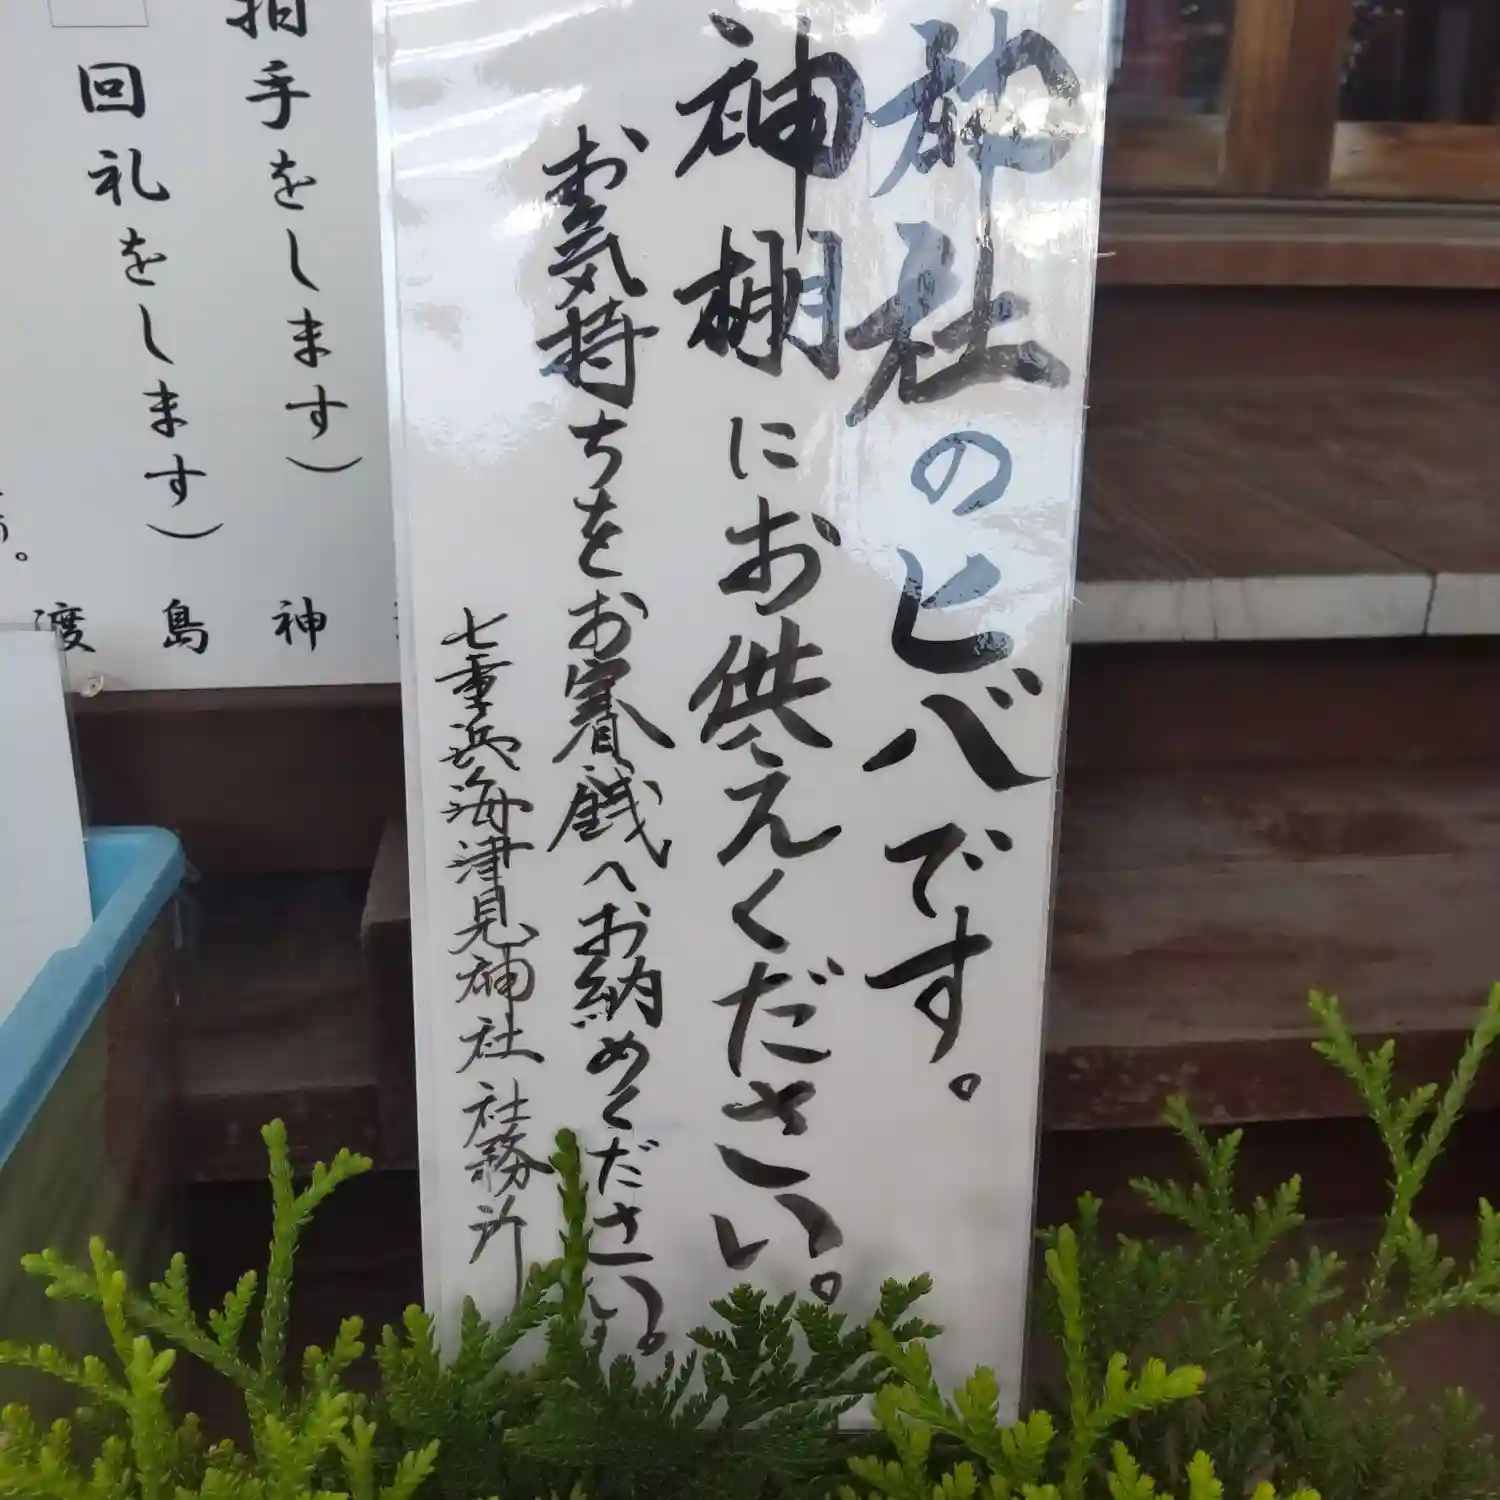 神社のヒバです。
神棚にお供えください。
お気持ちをお賽銭へお納めください。
七重浜海津見神社 社務所
拍手をします）
回礼をします）
う。
渡島神